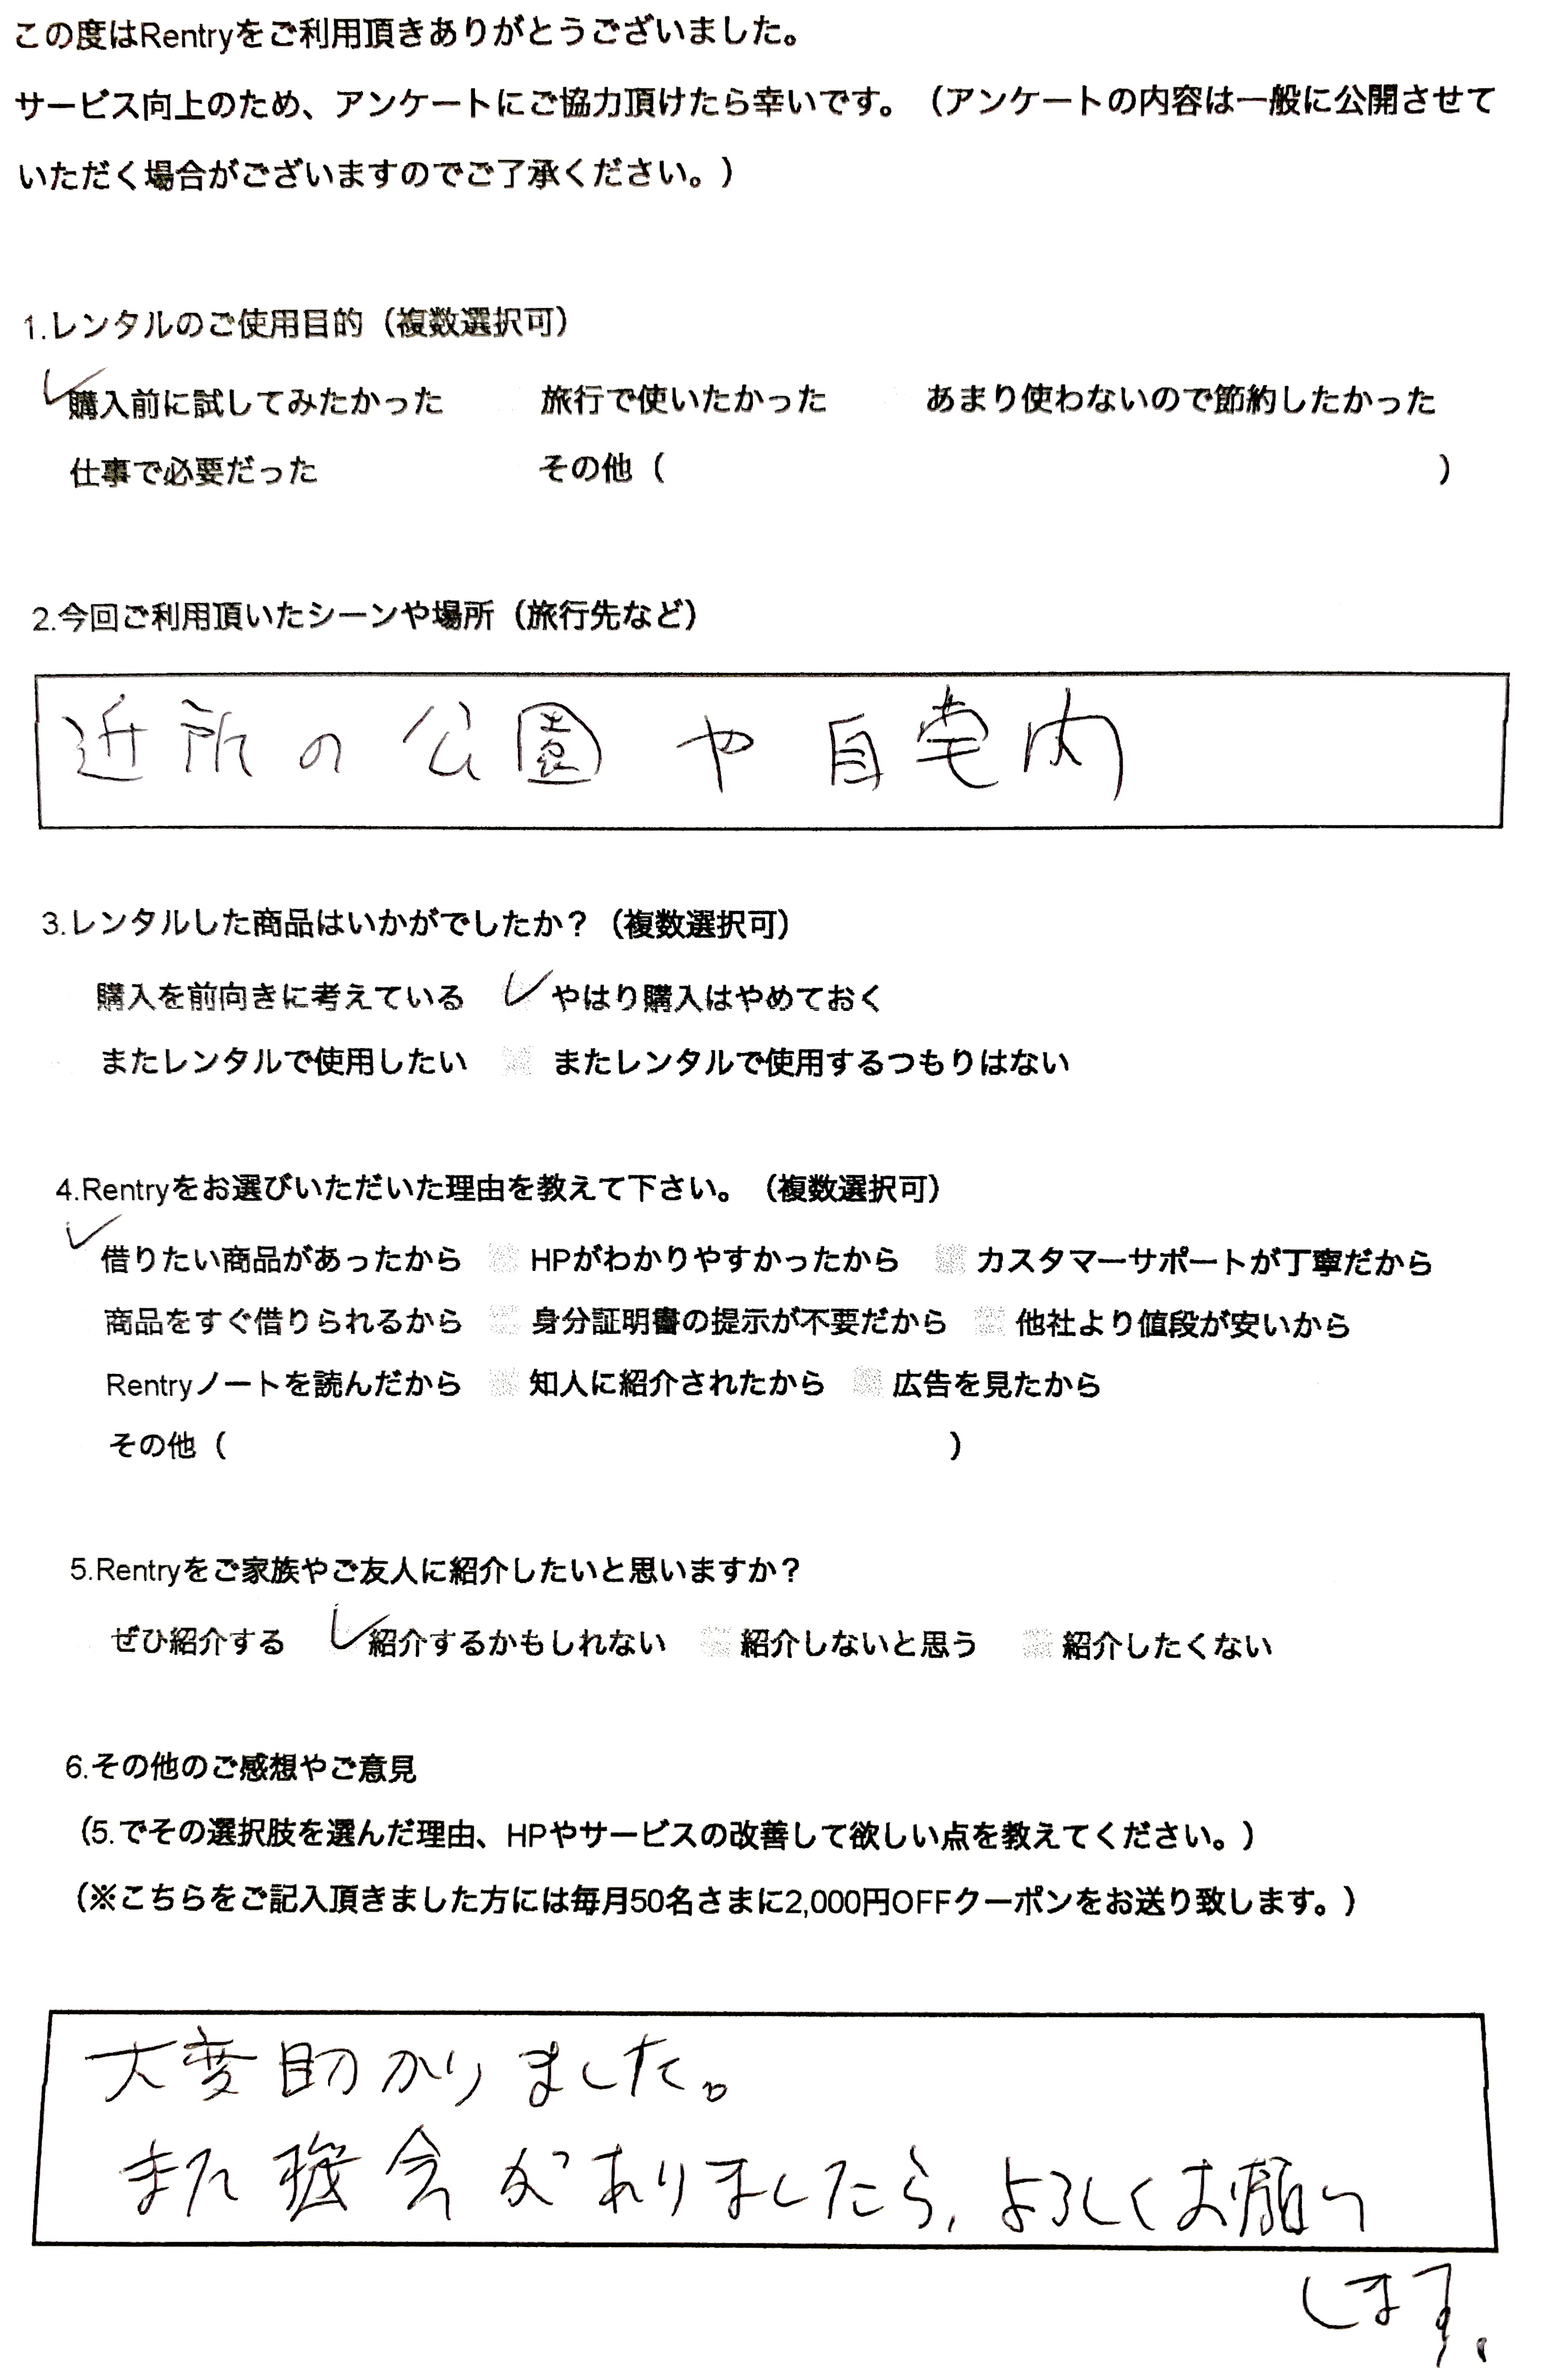 この度はRentryをご利用頂きありがとうございました。
サービス向上のため、アンケートにご協力頂けたら幸いです。（アンケートの内容は一般に公開させて
いただく場合がございますのでご了承ください。）
1.レンタルのご使用目的（複数選択可）
✓購入前に試してみたかった 旅行で使いたかった あまり使わないので節約したかった
仕事で必要だった その他（ ）
2.今回ご利用頂いたシーンや場所（旅行先など）
近所の公園や自宅内
3.レンタルした商品はいかがでしたか？（複数選択可）
購入を前向きに考えている ✓やはり購入はやめておく
またレンタルで使用したい またレンタルで使用するつもりはない
4.Rentryをお選びいただいた理由を教えて下さい。（複数選択可）
✓借りたい商品があったから HPがわかりやすかったから カスタマーサポートが丁寧だから
商品をすぐ借りられるから 身分証明書の提示が不要だから 他社より値段が安いから
Rentryノートを読んだから 知人に紹介されたから 広告を見たから
その他（ ）
5.Rentryをご家族やご友人に紹介したいと思いますか？
ぜひ紹介する ✓紹介するかもしれない 紹介しないと思う 紹介したくない
6.その他のご感想やご意見
（5.でその選択肢を選んだ理由、HPやサービスの改善して欲しい点を教えてください。）
（※こちらをご記入頂きました方には毎月50名さまに2,000円OFFクーポンをお送り致します。）
大変助かりました。
また機会がありましたら、よろしくお願い
します。